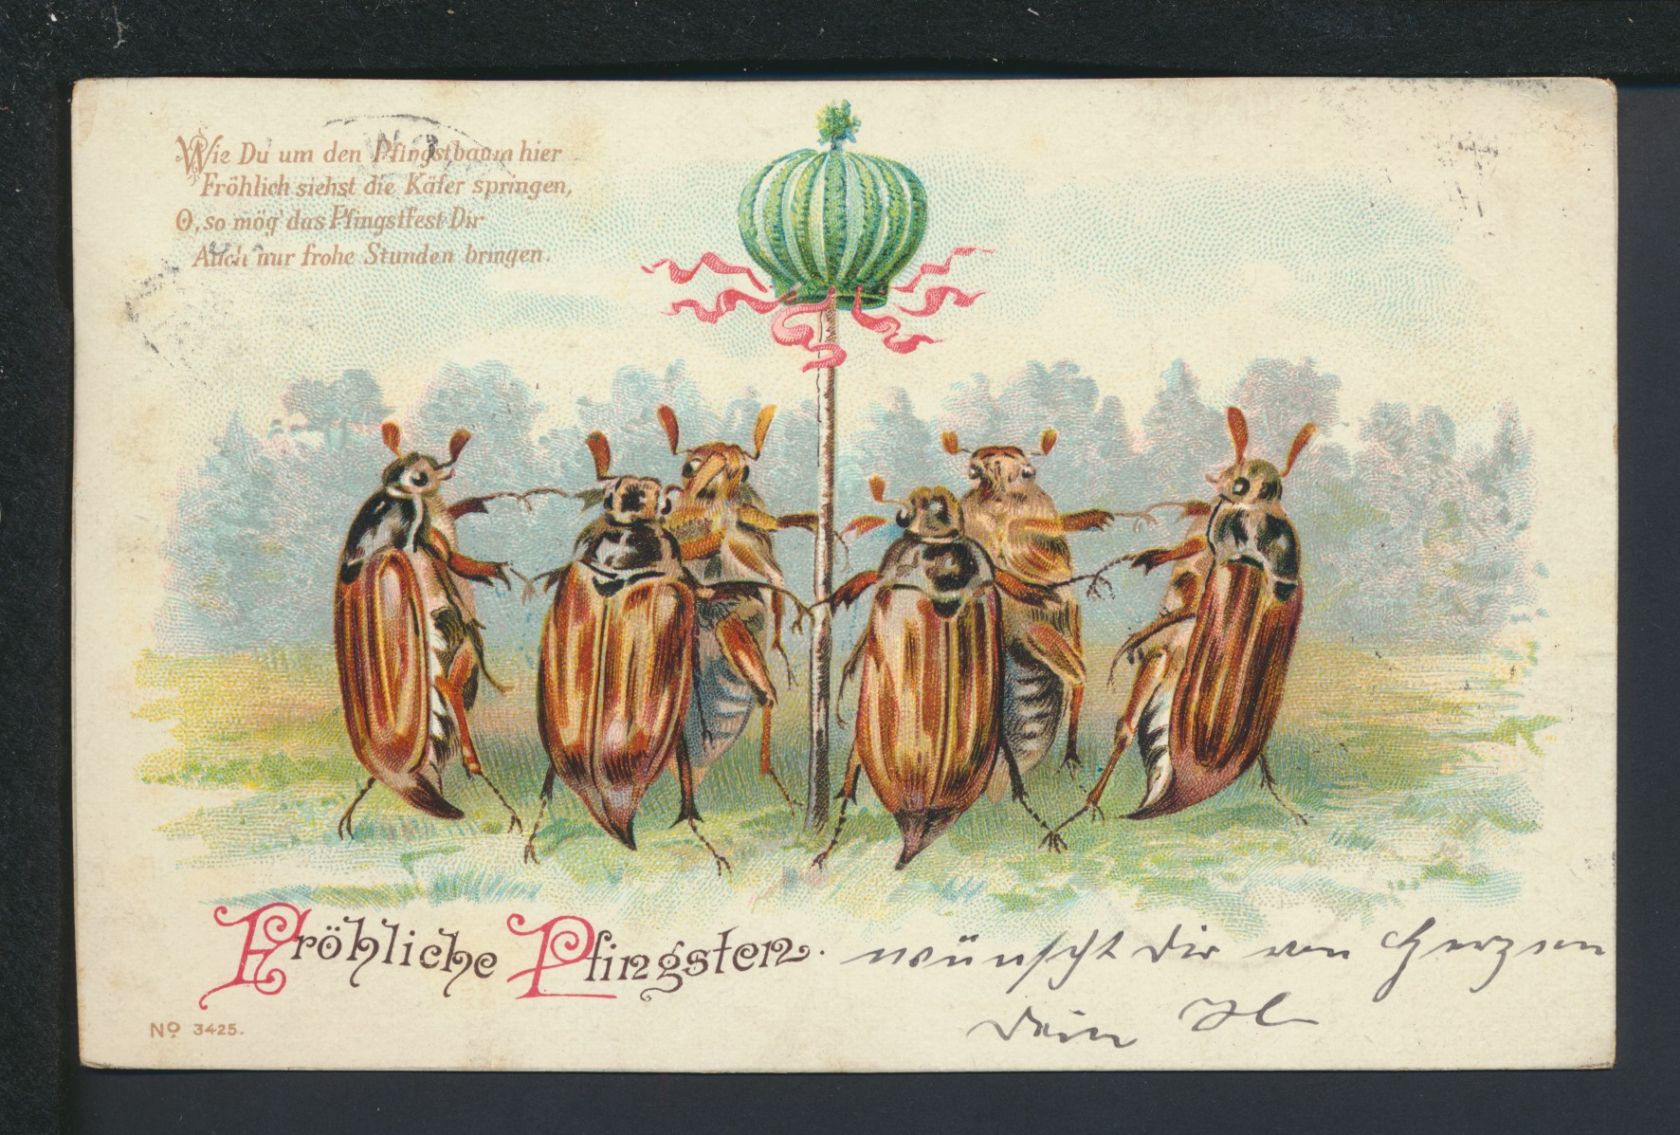 Wie Du um den Pfingstbaum hier
Fröhlich siehst die Käfer springen,
O, so mög' das Pfingstfest Dir
Auch nur frohe Stunden bringen.
Fröhliche Pfingsten. wünscht dir von Herzen
Dein
No 3425.